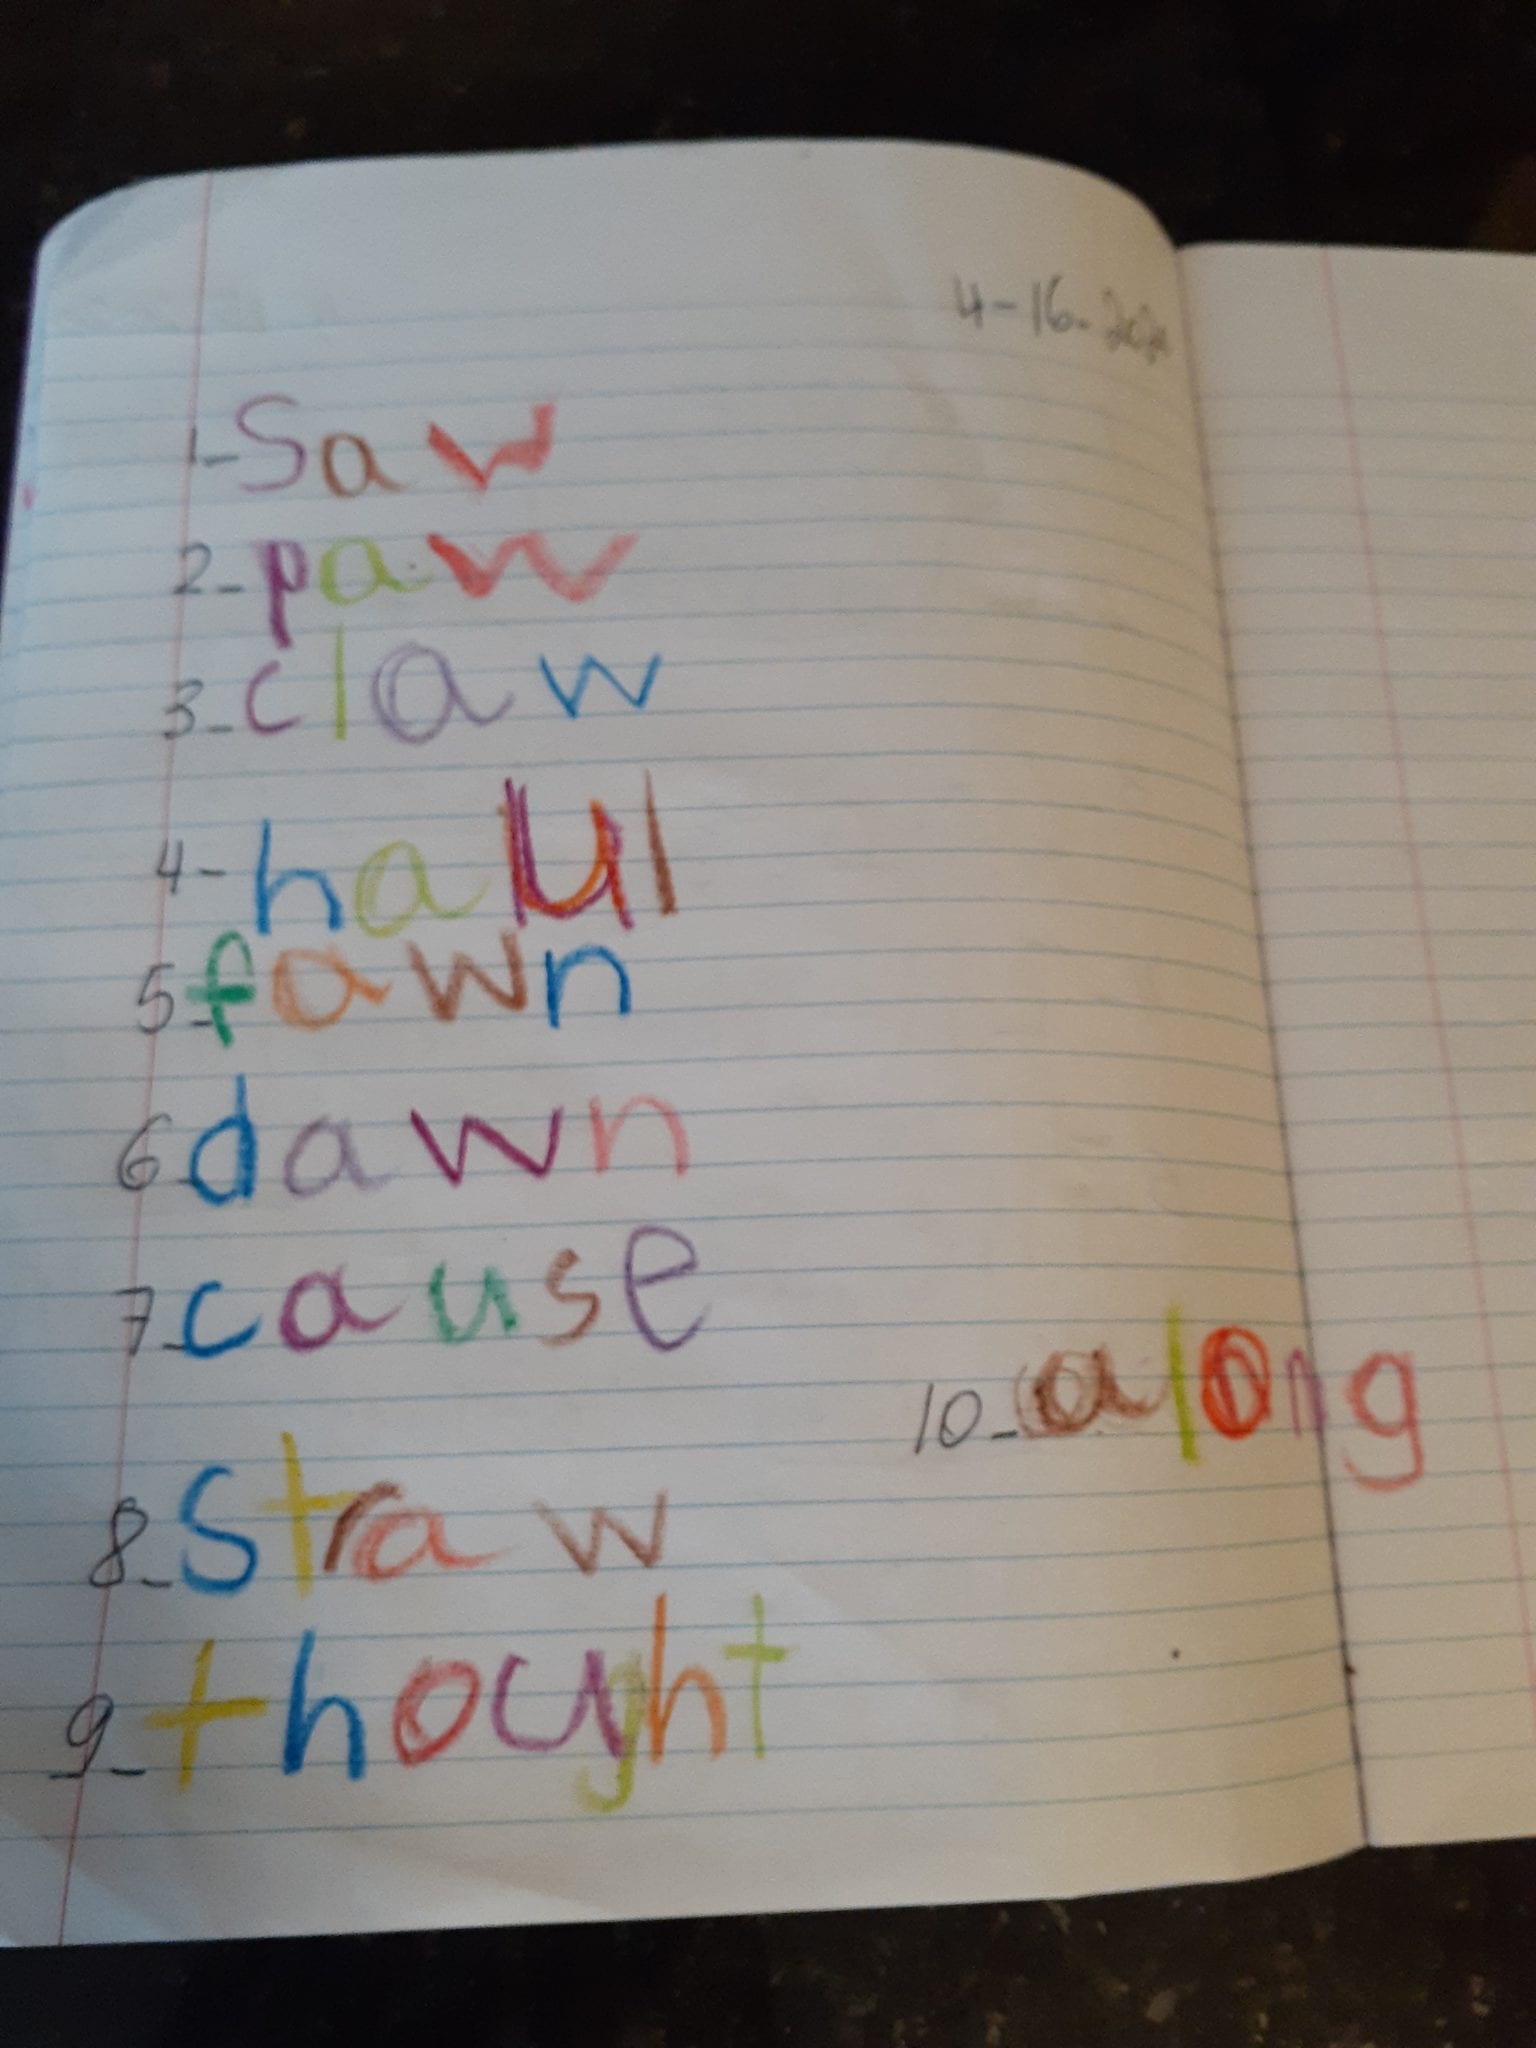 4-16-202
1-Saw
2-paw
3-claw
4-haul
5-fawn
6-dawn
7-cause
8-Straw
9-thought
10-along